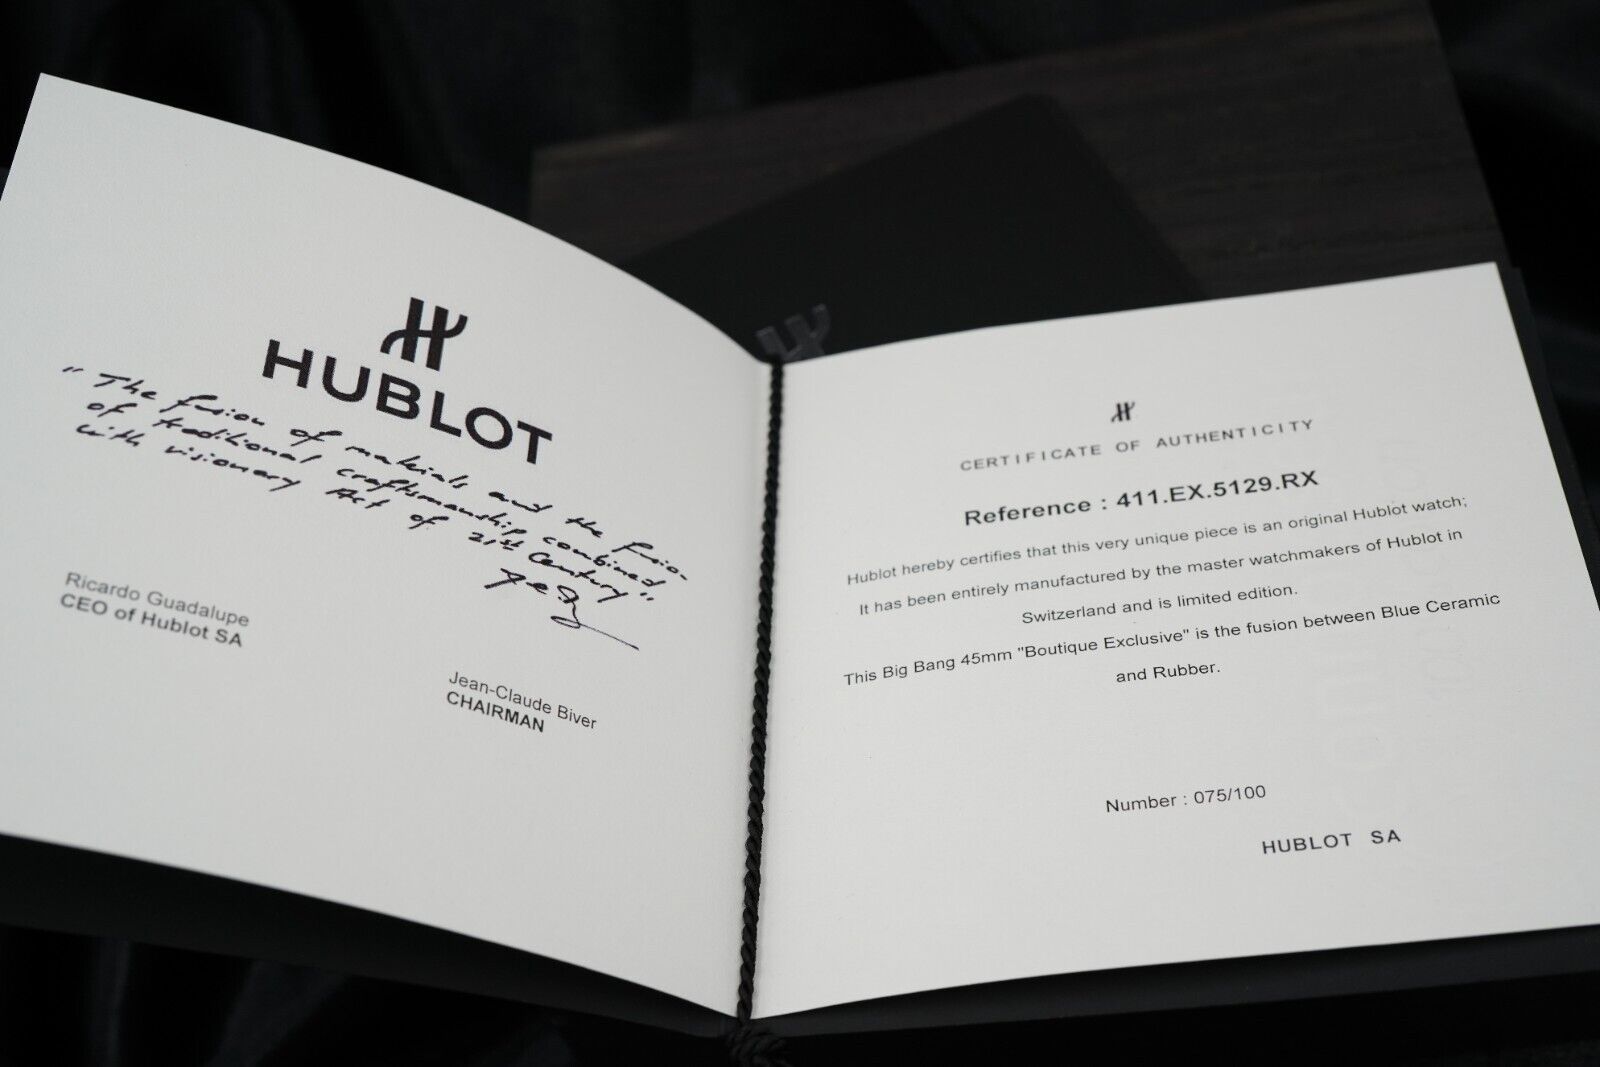 HUBLOT
"The fusion of materials and the fusio-
of traditional craftsmanship combined
with visionary Art of 21st Century"
Ricardo Guadalupe
CEO of Hublot SA
Jean-Claude Biver
CHAIRMAN
CERTIFICATE OF AUTHENTICITY
Reference : 411.EX.5129.RX
Hublot hereby certifies that this very unique piece is an original Hublot watch;
It has been entirely manufactured by the master watchmakers of Hublot in
Switzerland and is limited edition.
This Big Bang 45mm "Boutique Exclusive" is the fusion between Blue Ceramic
and Rubber.
Number : 075/100
HUBLOT SA